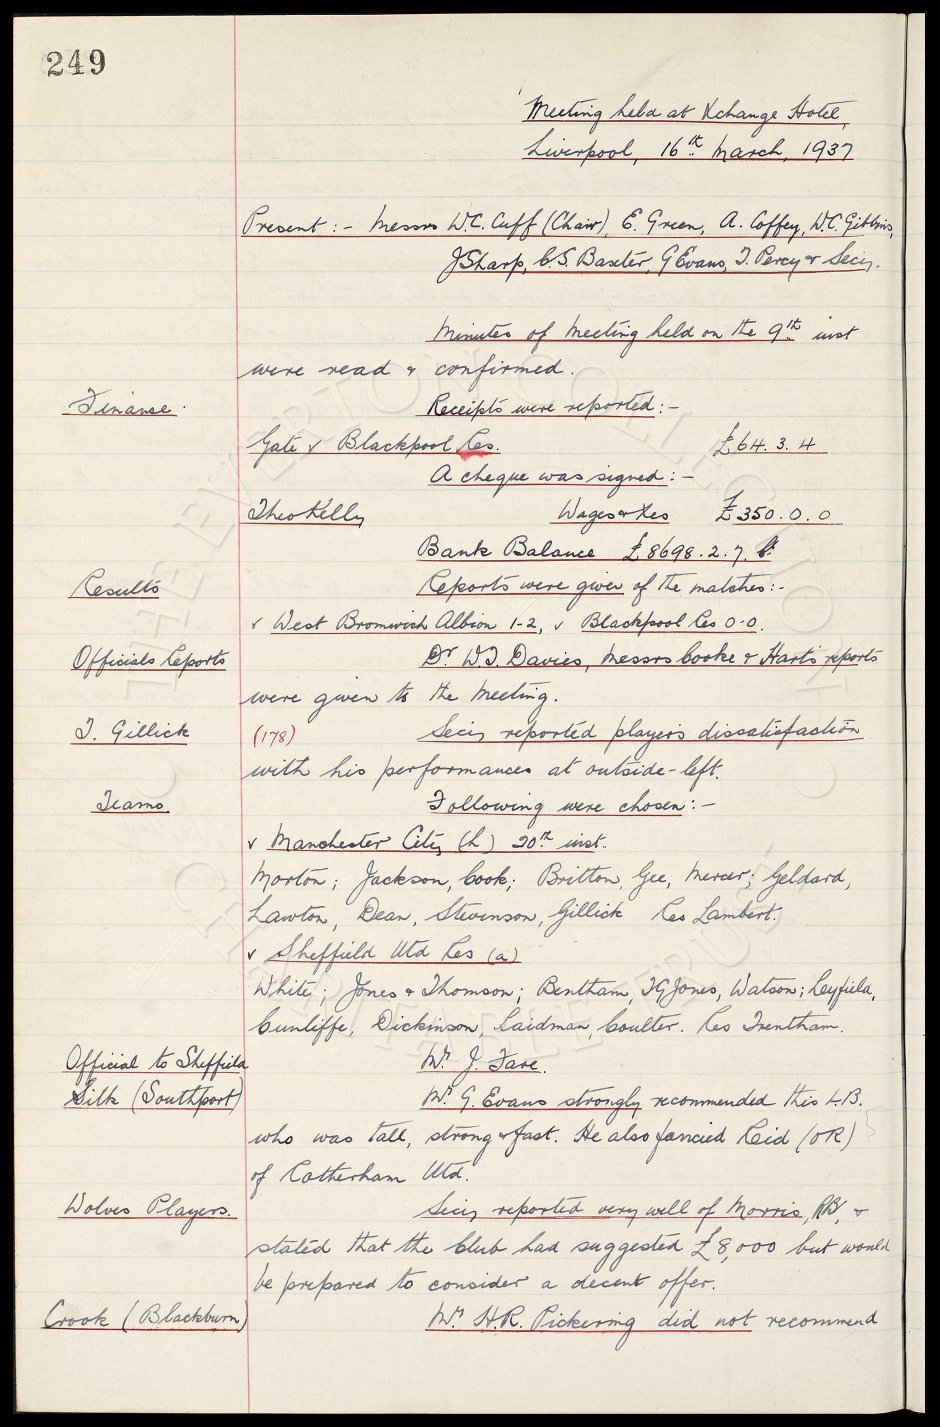 249
Meeting held at Xchange Hotel,
Liverpool, 16th March, 1937
Present :- Messrs W.C. Cuff (Chair), E. Green, A. Coffey, W.C. Gibbins,
J Sharp, C.S. Baxter, G Evans, T. Percy & Secy.
Minutes of Meeting held on the 9th inst
were read & confirmed.
Finance.
Receipts were reported :-
Gate v Blackpool Res. £64.3.4
A cheque was signed :-
Theo Kelly Wages & Xes £350.0.0
Bank Balance £8698.2.7.
Results
Reports were given of the matches :-
v West Bromwich Albion 1-2, v Blackpool Res 0-0.
Officials Reports
Dr W.J. Davies, Messrs Cooke & Hart's reports
were given to the Meeting.
T. Gillick
(178) Secy reported players dissatisfaction
with his performances at outside-left.
Teams.
Following were chosen :-
v Manchester City (h) 20th inst.
Morton; Jackson, Cook; Britton, Gee, Mercer; Geldard,
Lawton, Dean, Stevenson, Gillick Res Lambert.
v Sheffield Utd Res (a)
White; Jones & Thomson; Bentham, TG Jones, Watson; Leyfield,
Cunliffe, Dickinson, Laidman, Coulter. Res Trentham.
Official to Sheffield
Mr J. Fare.
Silk (Southport)
Mr G. Evans strongly recommended this L.B.
who was tall, strong & fast. He also fancied Reid (OR)
of Rotherham Utd.
Wolves Players.
Secy reported very well of Morris, RB, &
stated that the Club had suggested £8,000 but would
be prepared to consider a decent offer.
Crook (Blackburn)
Mr H.R. Pickering did not recommend
THE EVERTON COLLECTION
CHARITABLE TRUST